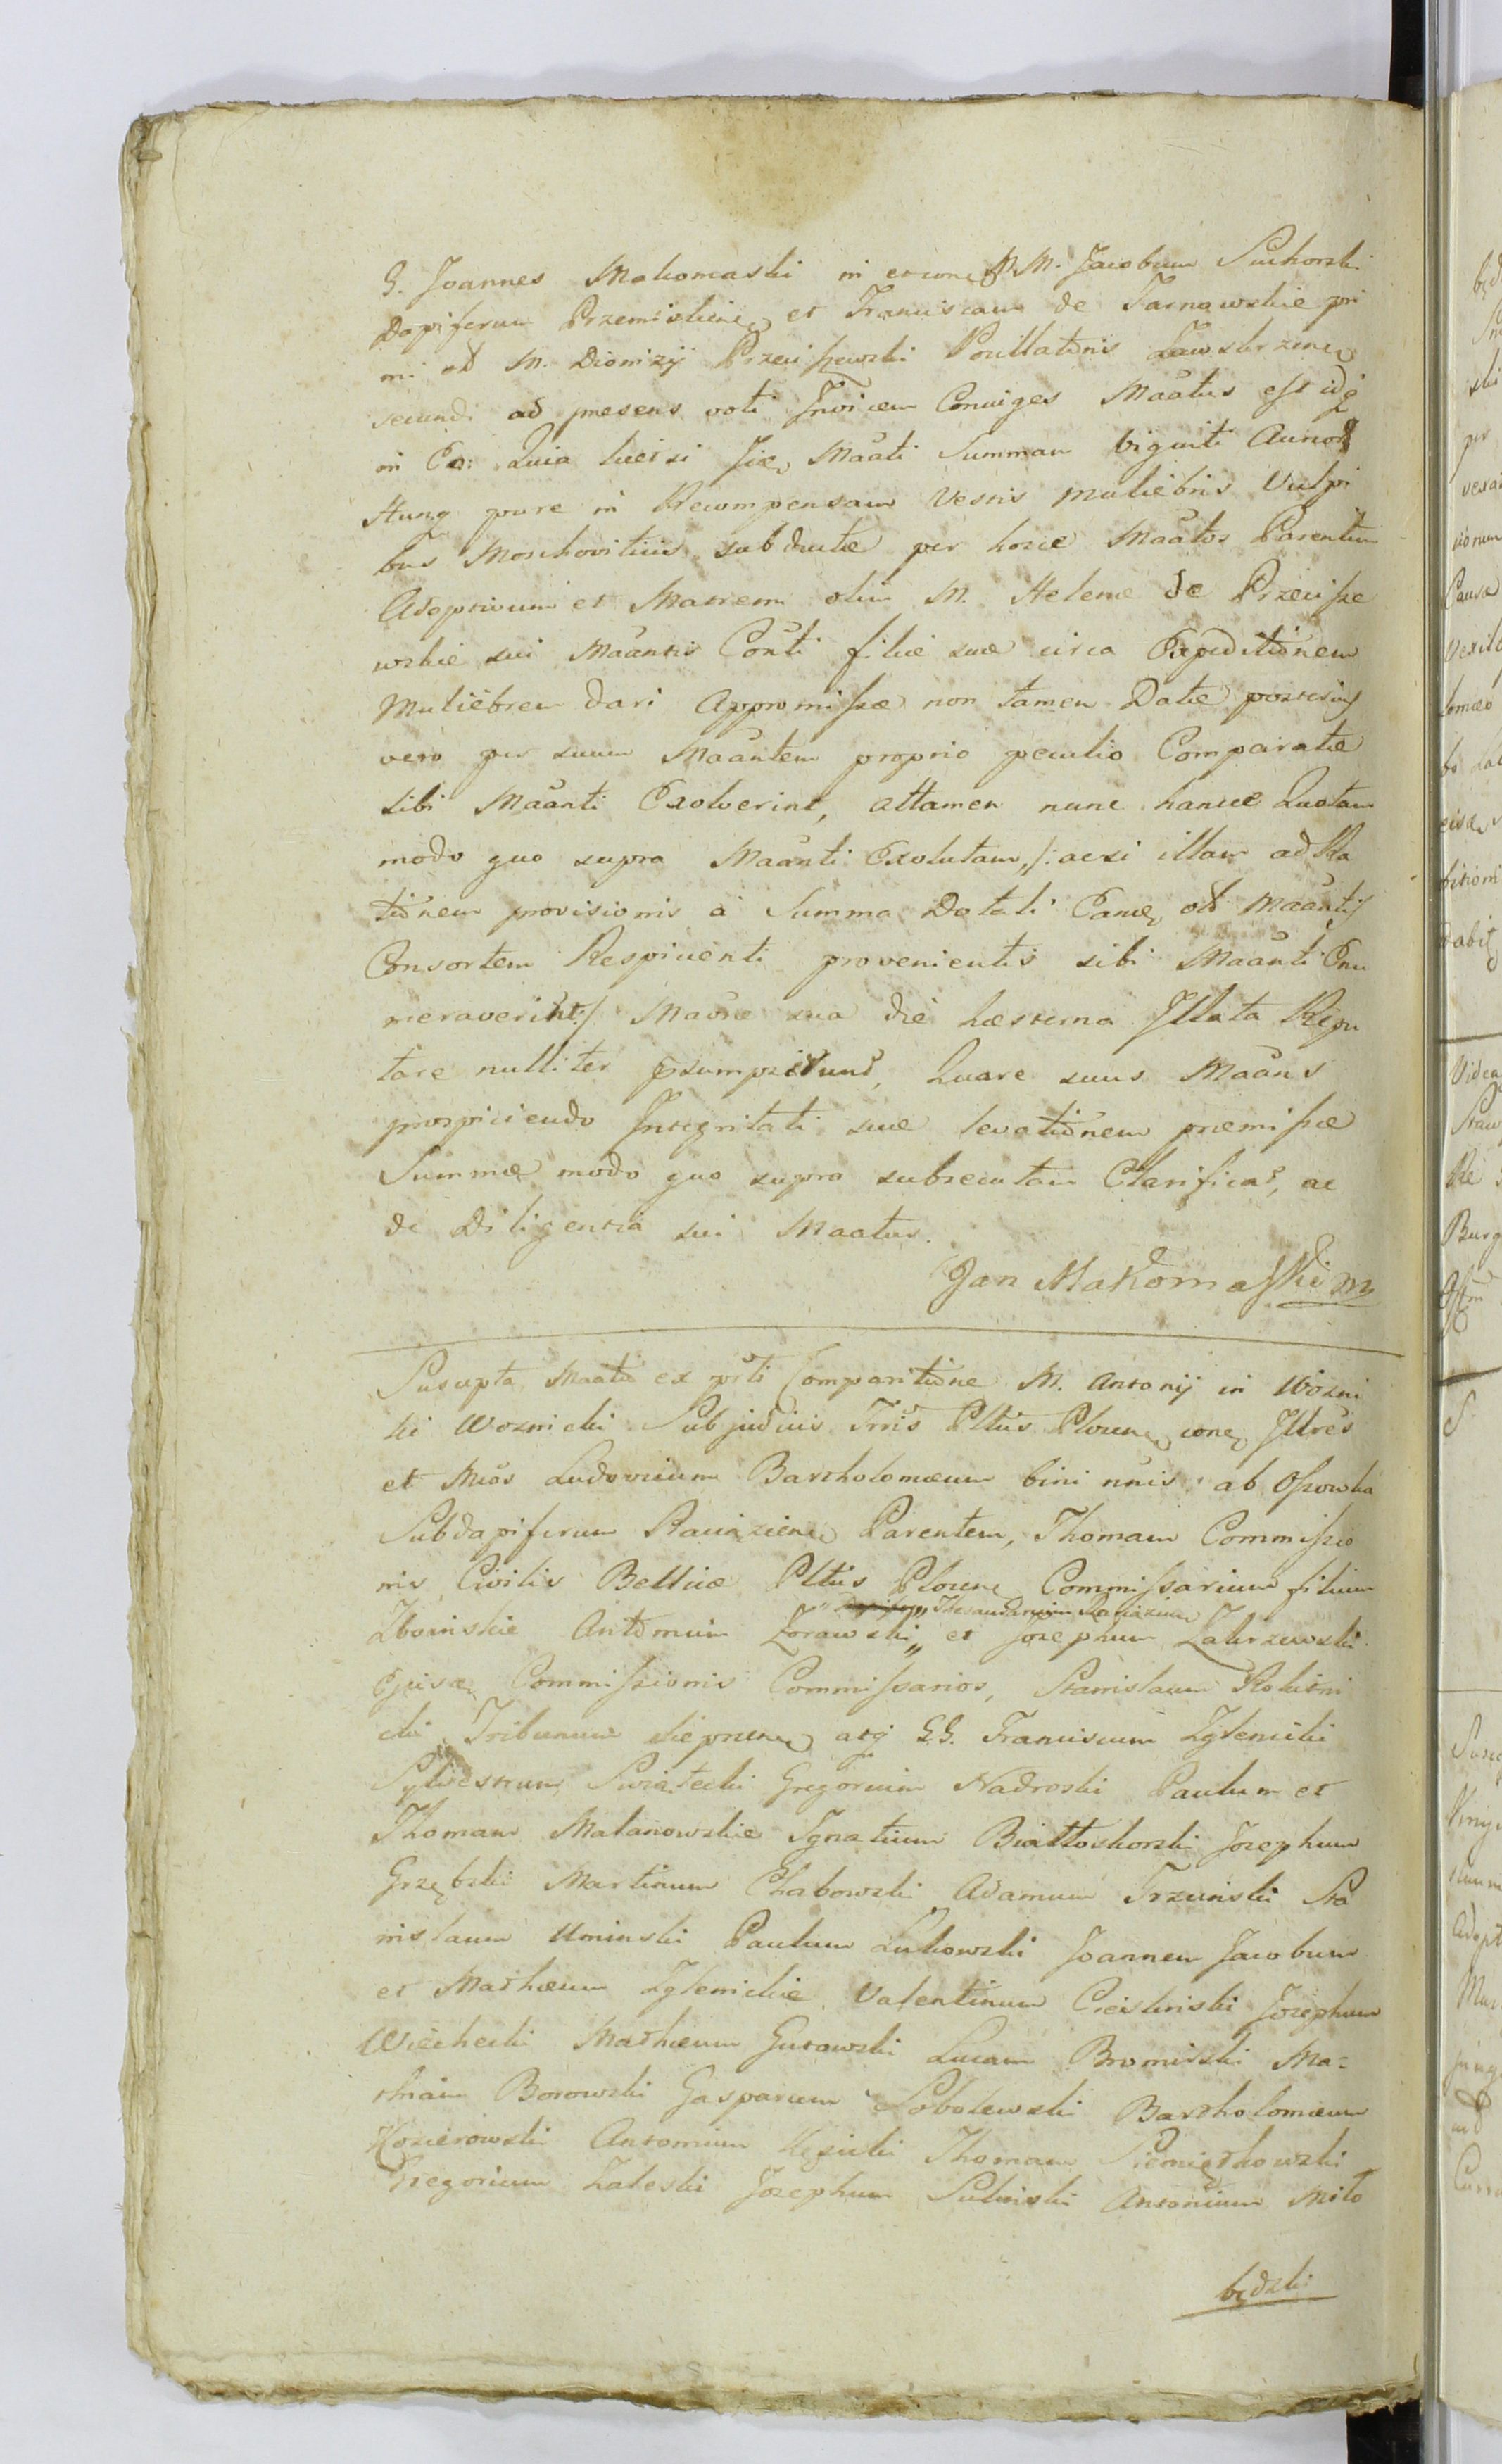 G. Joannes Makomaski in et cone M. M. Jacobum Suchorski
Dapiferum Przemislien et Franciscam de Tarnawskie pri
mi ad M. Dionizÿ Przeciszewski Poccillatoris
secundi ad presens voti Invicem Conuiges Maatus est idq
in Eo: Quia licet si Jie Maati Summam viginti Aureor
Hung pure in Recompensam Vestis muliebris Vulpi
bus Moschovitiis subductæ per hosce Maatos Parentem
Adoptivum et Matrem olim M. Helenæ de Przecisze
wskie sui Maantis Conti filiæ suæ circa Expeditionem
Muliebrem dari appromissæ non tamen Datæ posterius
vero per suum Maantem proprio peculio Comparatæ
sibi Maanti Exolverint, attamen nunc hancce Quotam
modo quo supra Maanti Exolutam, /: acsi illam ad Ra
tionem provisionis à Summa Dotali Eam ad Maantis
Consortem Respicienti provenientis sibi Maanti Enu
meraverint :/ Maone sua die hæsterna Illata Repu
tare nulliter psumpserunt, Quare suus Maans
prospiciendo Integritati suæ levationem præmissæ
Summæ modo quo supra subsecutam Clarificat, ac
de Diligentia sui Maatur.
Jan Makomaski m
Suscepta Maatio ex prti Comparitione M. Antonÿ in Wozni
ki Woznicki Subjudicis Trris Pltus Plocen cone Illres
et Mcos Ludovicum Bartholomæum bini nnis ab Ossowka
Subdapiferum Raciazien Parentem, Thomam Commissio
nis Civilis Bellicæ Pltus Plocen Commissarium filium
Zboinskie Antonium Zorawski „ Thesaurarium Raciazien „ et Josephum Zakrzewski
Ejusd Commissionis Commissarios, Stanislaum Rokitni
cki Tribunum atq G.G. Franciscum Zglenicki
Sylvestrum Swiatecki Gregorium Nadroski Paulum et
Thomam Malanowskie Ignatium Białłoskorski Josephum
Grzębski Martinum Chabowski Adamum Trzcinski Sta
nislaum Uminski Paulum Łukowski Joannem Jacobum
et Mathæum Zglenickie Valentinum Cieslinski Josephum
Wiechecki Mathæum Gutowski Lucam Bromirski Ma=
thiam Borowski Gasparum Sobolewski Bartholomæum
Kozierowski Antonium Kęsicki Thomam Pieniążkowski
Gregorium Zaleski Josephum Sulinski Antonium Miło
będzki